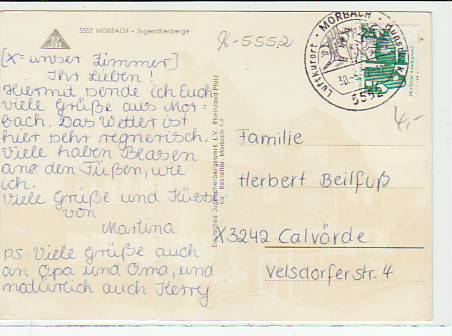 5552 MORBACH - Jugendherberge
K-5552
[X = unser Zimmer]
Ihr Lieben!
Hiermit sende ich Euch
viele Grüße aus Mor-
bach. Das Wetter ist
hier sehr regnerisch.
Viele haben Blasen
an den Füßen, wie
ich.
Viele Grüße und Küsse
von
Martina
PS: Viele Grüße auch
an Opa und Oma, und
natürlich auch Kerry
Deutsches Jugendherbergswerk L.V. Rheinland-Pfalz
Bestellnr. Morbach
Luftkurort · MORBACH · Hunsrück
5552
4,-
Familie
Herbert Beilfuß
X3242 Calvörde
Velsdorferstr. 4